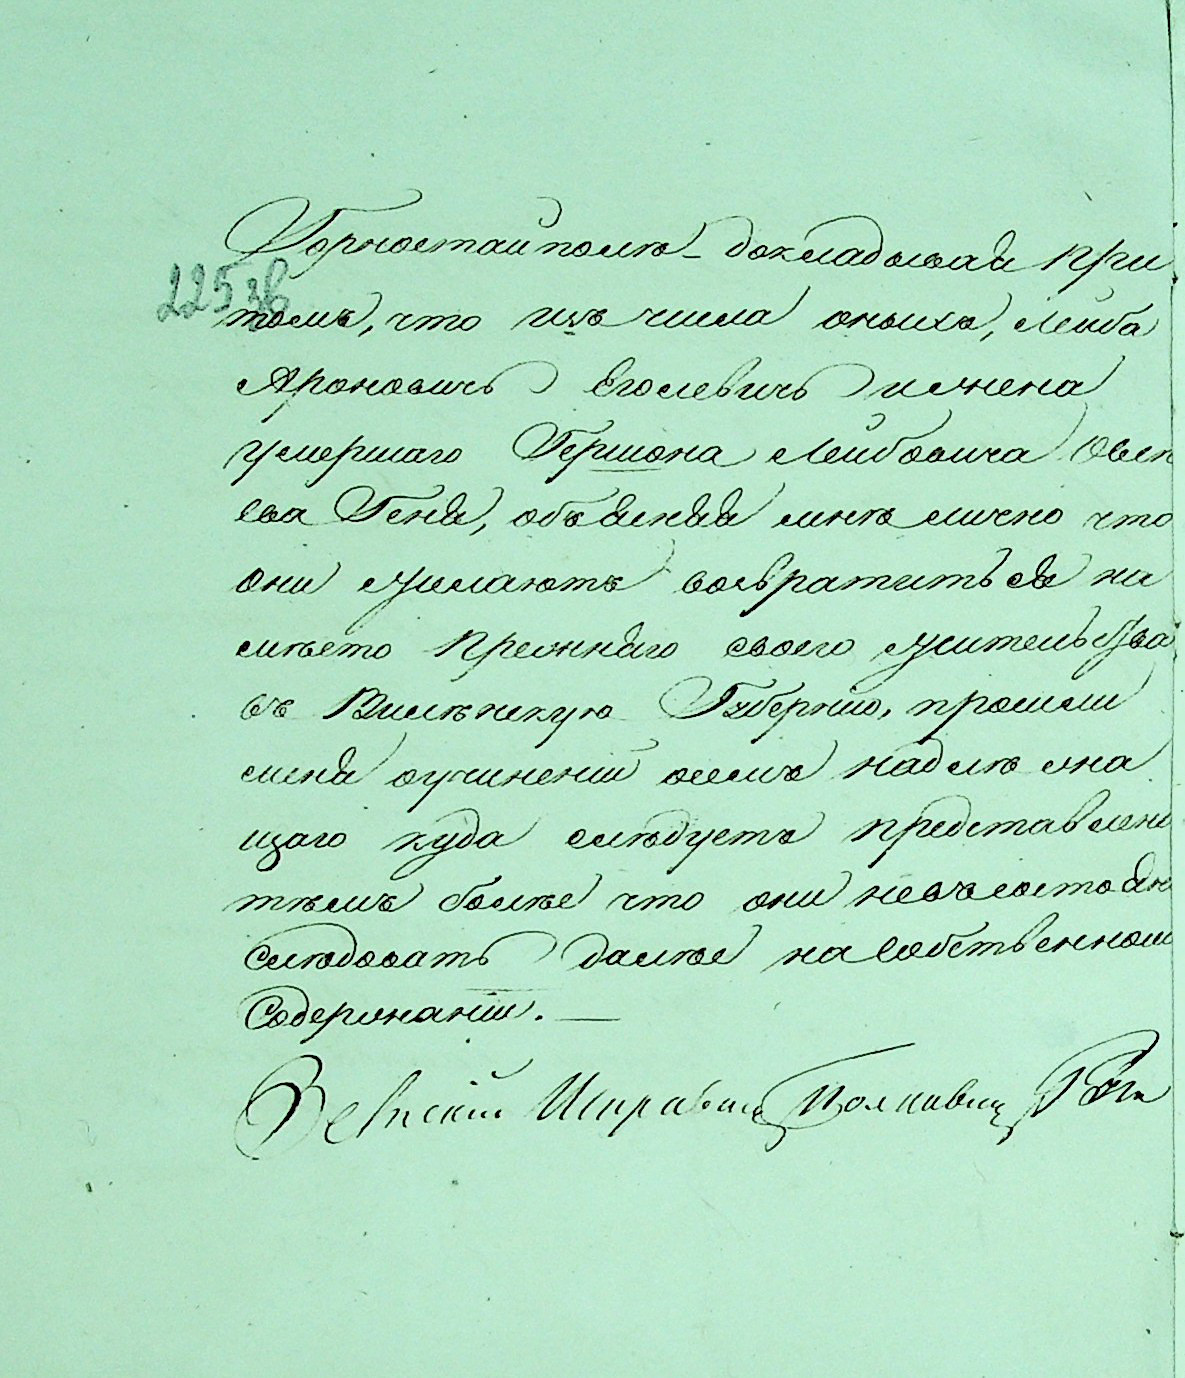 Горностайполѣ – докладывая при
225 об
томъ, что изъ числа оныхъ, Лейба
Ароновичъ Еголевичъ и жена
умершаго Гершона Лейбовича Овсѣ
ева Геня, объясняя мнѣ лично что
они желаютъ возвратиться на
мѣсто прежняго своего жительства
въ Виленскую Губернію, просили
меня о учиненіи о семъ надлежа
щаго куда слѣдуетъ представлені
тѣмъ болѣе что они невъ состоян
слѣдовать далѣе на собственном
содержаніи. —
Земскій Исправник Полковник